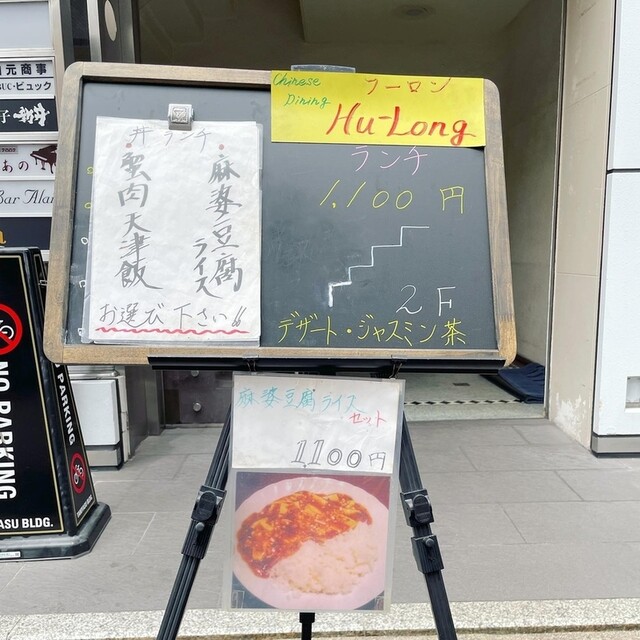 元商事
BUC・ビュック
Bar Alan
Chinese
Dining
フーロン
Hu-Long
ランチ
1,100円
2F
デザート・ジャスミン茶
丼ランチ
・麻婆豆腐ライス
・蟹肉天津飯
お選び下さい!!
麻婆豆腐ライス
セット
1,100円
NO PARKING
ASU BLDG.
PARKING